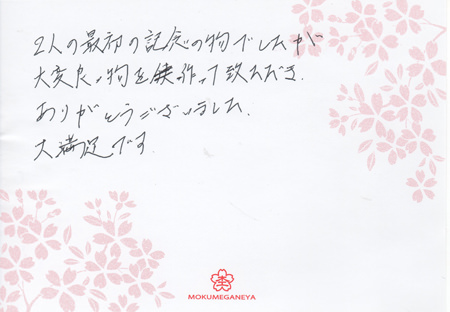 2人の最初の記念の物でしたが
大変良い物を作って致ただき、
ありがとうございました。
大満足です
MOKUMEGANEYA